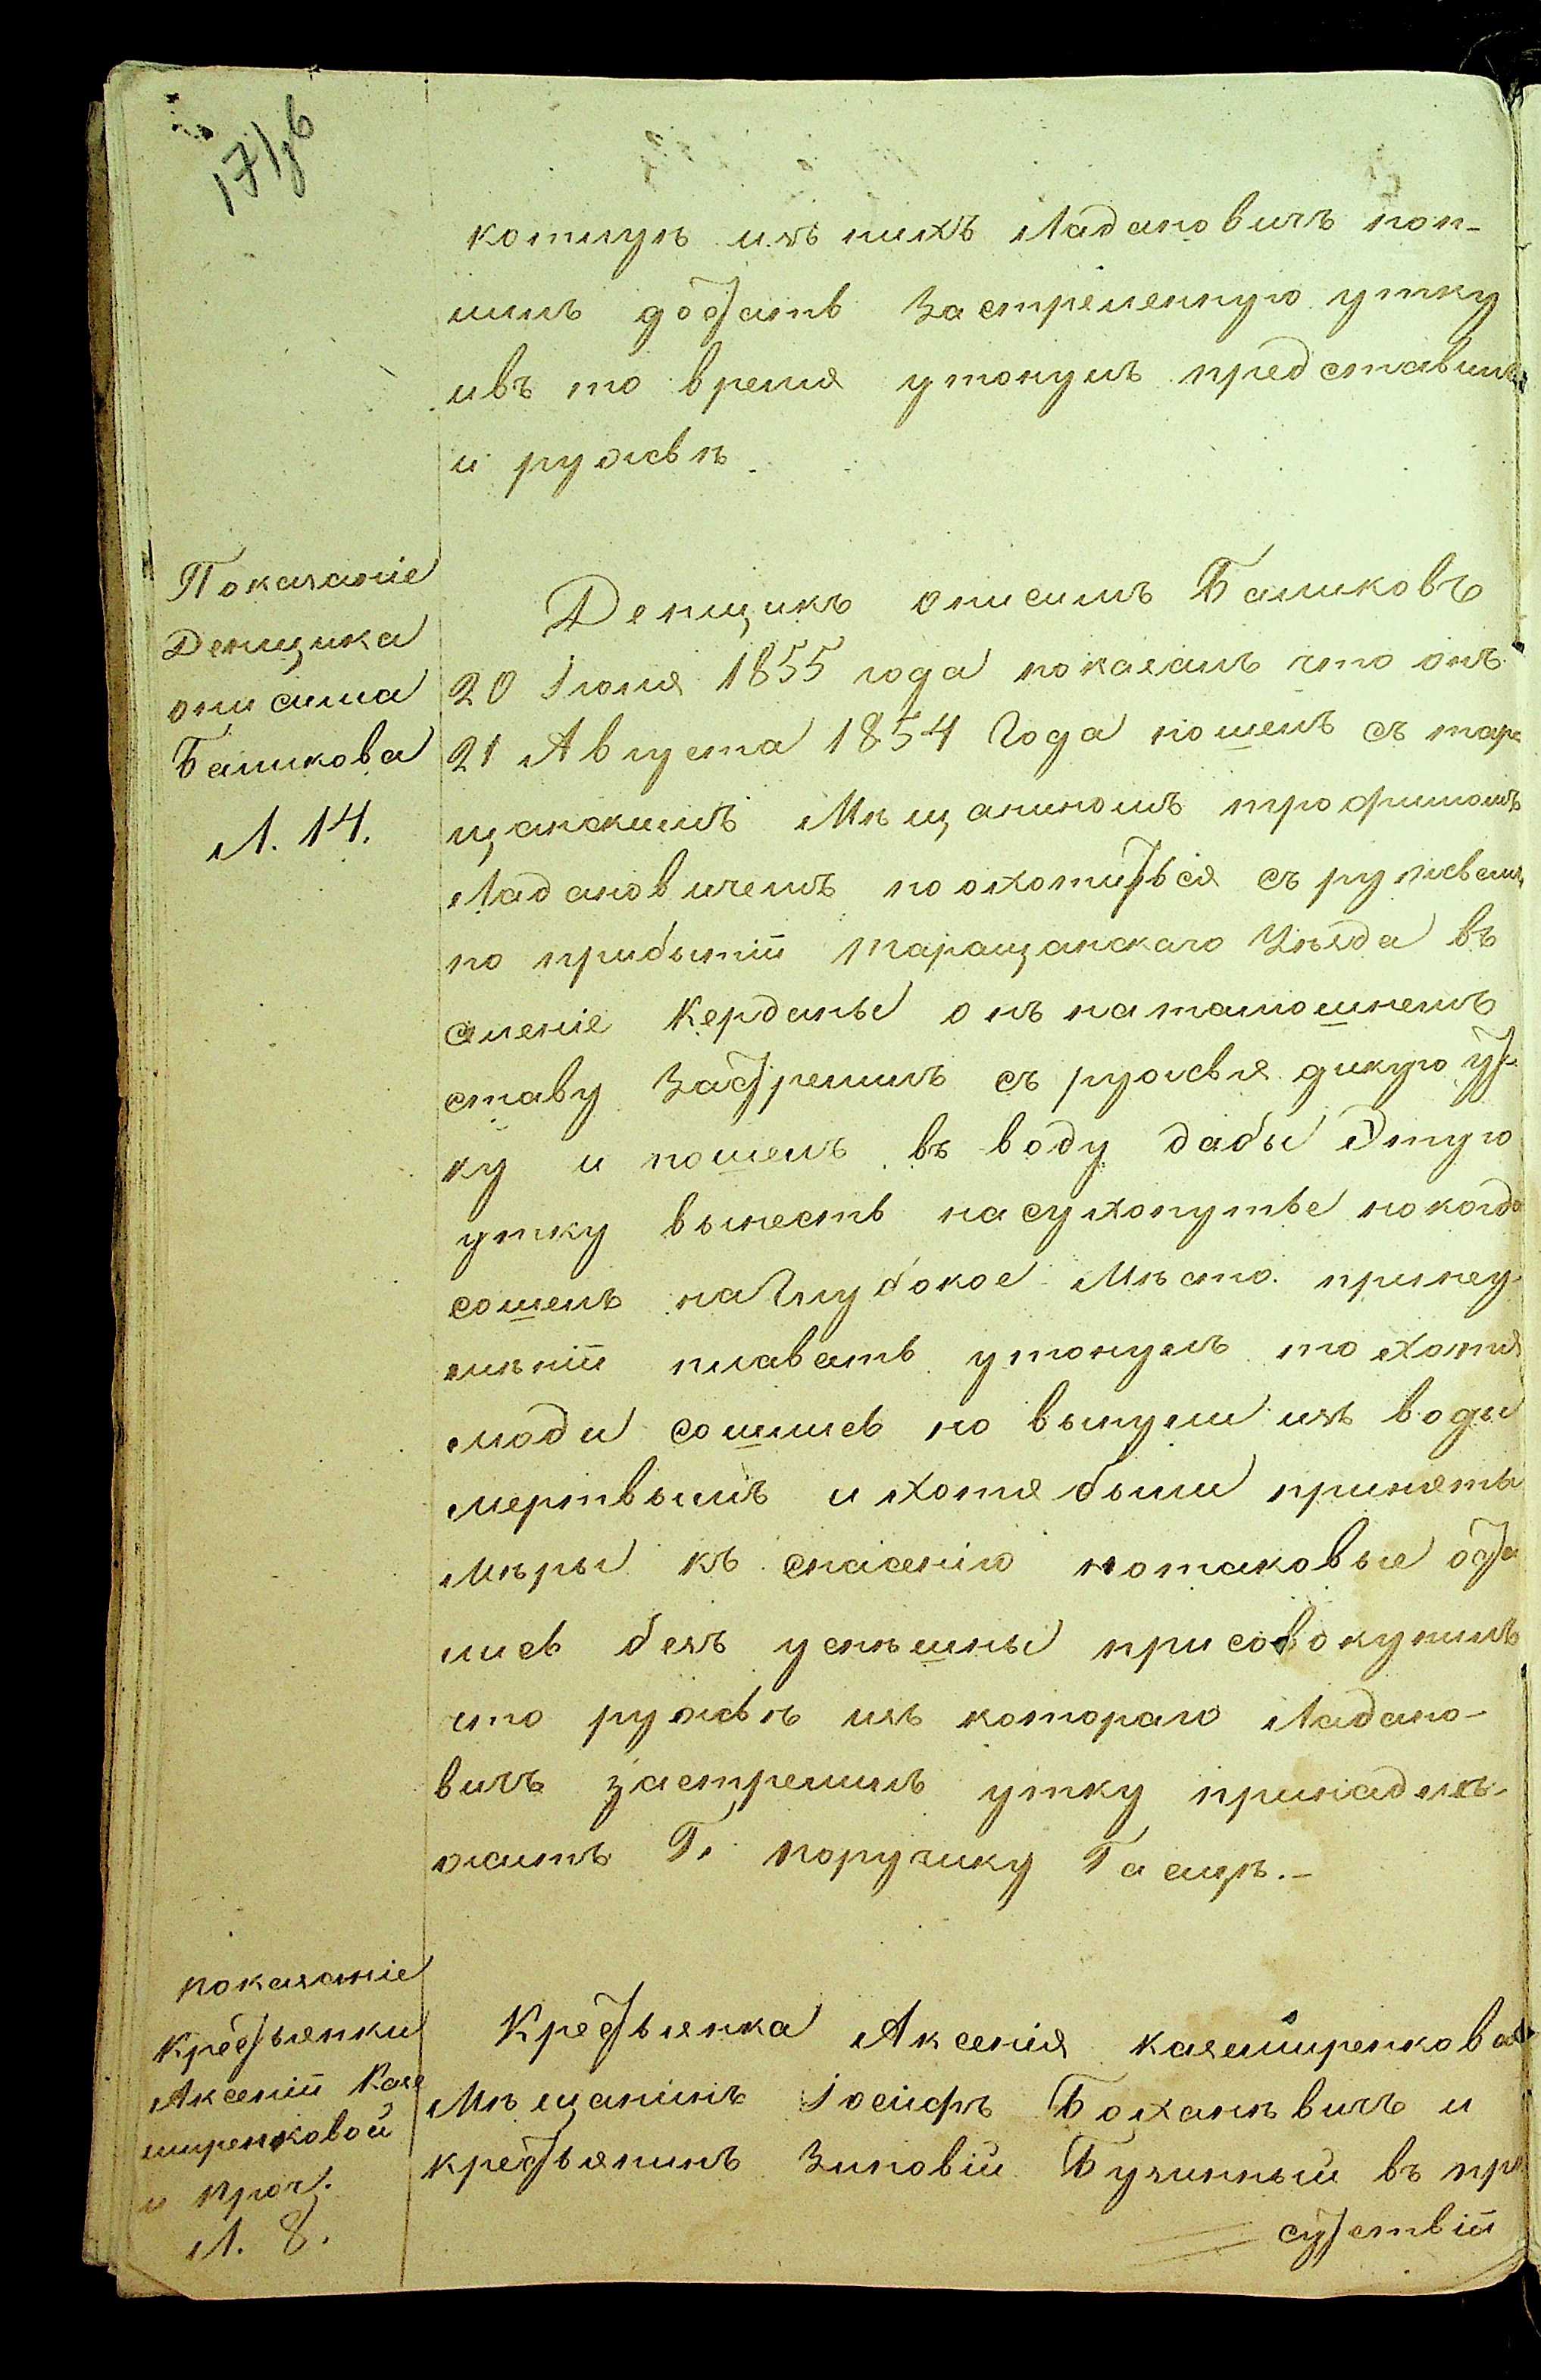 котмун изъ нихъ Ладановичъ поп-
лилъ достать Застреленную утку
ивъ то время утонулъ представилъ
и ружьѣ
Показаніе
Денщика
онисима
Баликова
Л. 14.
Денщикъ онисимъ Баликовъ
20 Іюня 1855 года показалъ что онъ
21 Августа 1854 Года пошелъ съ тара
щанскимъ Мѣщаниномъ трофимомъ
Ладановичемъ поохотиться съ ружьемъ
по прибытіи таращанскаго Уѣзда въ
селеніе Керданы онъ натамошнемъ
ставу Застрелилъ съ ружья дикую ут-
ку и пошелъ въ воду дабы Этую
утку вынесть насухопутье но когда
сошелъ наГлубокое Мѣсто принеу-
мѣніи плавать утонулъ то хотя
люди сошлись но вынули изъ воды
мертвымъ и хотя были приняты
Мѣры къ спасенію нотаковые оста
лись безъ успѣшны присовокупилъ
что ружьѣ изъ котораго Ладано-
вичъ застрелилъ утку принадлѣ-
житъ Г. поручику
показаніе
Крестьянки
Аксеніи Казе
миренковой
и проч.
Л. 8.
Крестьянка Аксенія казеимиренкова
Мѣщанинъ Іосифъ Боханѣвичъ и
крестьянинъ Зиновій Бучинный въ при
сутствіи